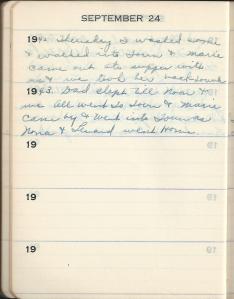 SEPTEMBER 24
19 Thursday I washed
& walked into Town & Marie
came out to supper with
us & we took her back
1943. Dad slept till Noon &
we all went to Town & Marie
came by & went into Town
Nona & went Home.
19
19
19